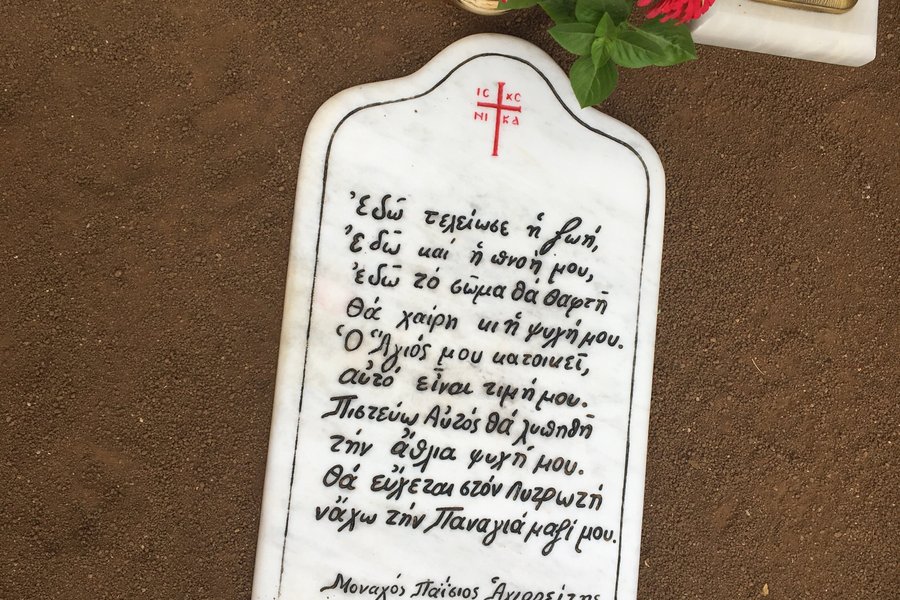 ΙC ΧC
ΝΙ ΚΑ
Ἐδῶ τελείωσε ἡ ζωή,
Ἐδῶ καί ἡ πνοή μου,
ἐδῶ τό σῶμα θά θαφτῆ
Θά χαίρη κι ἡ ψυχή μου.
Ὁ Ἅγιός μου κατοικεῖ,
αὐτό εἶναι τιμή μου.
Πιστεύω Αὐτός θά λυπηθῆ
τήν ἄθλια ψυχή μου.
Θά εὔχεται στόν Λυτρωτή
νἄχω τήν Παναγιά μαζί μου.
Μοναχός Παΐσιος Ἁγιορείτης